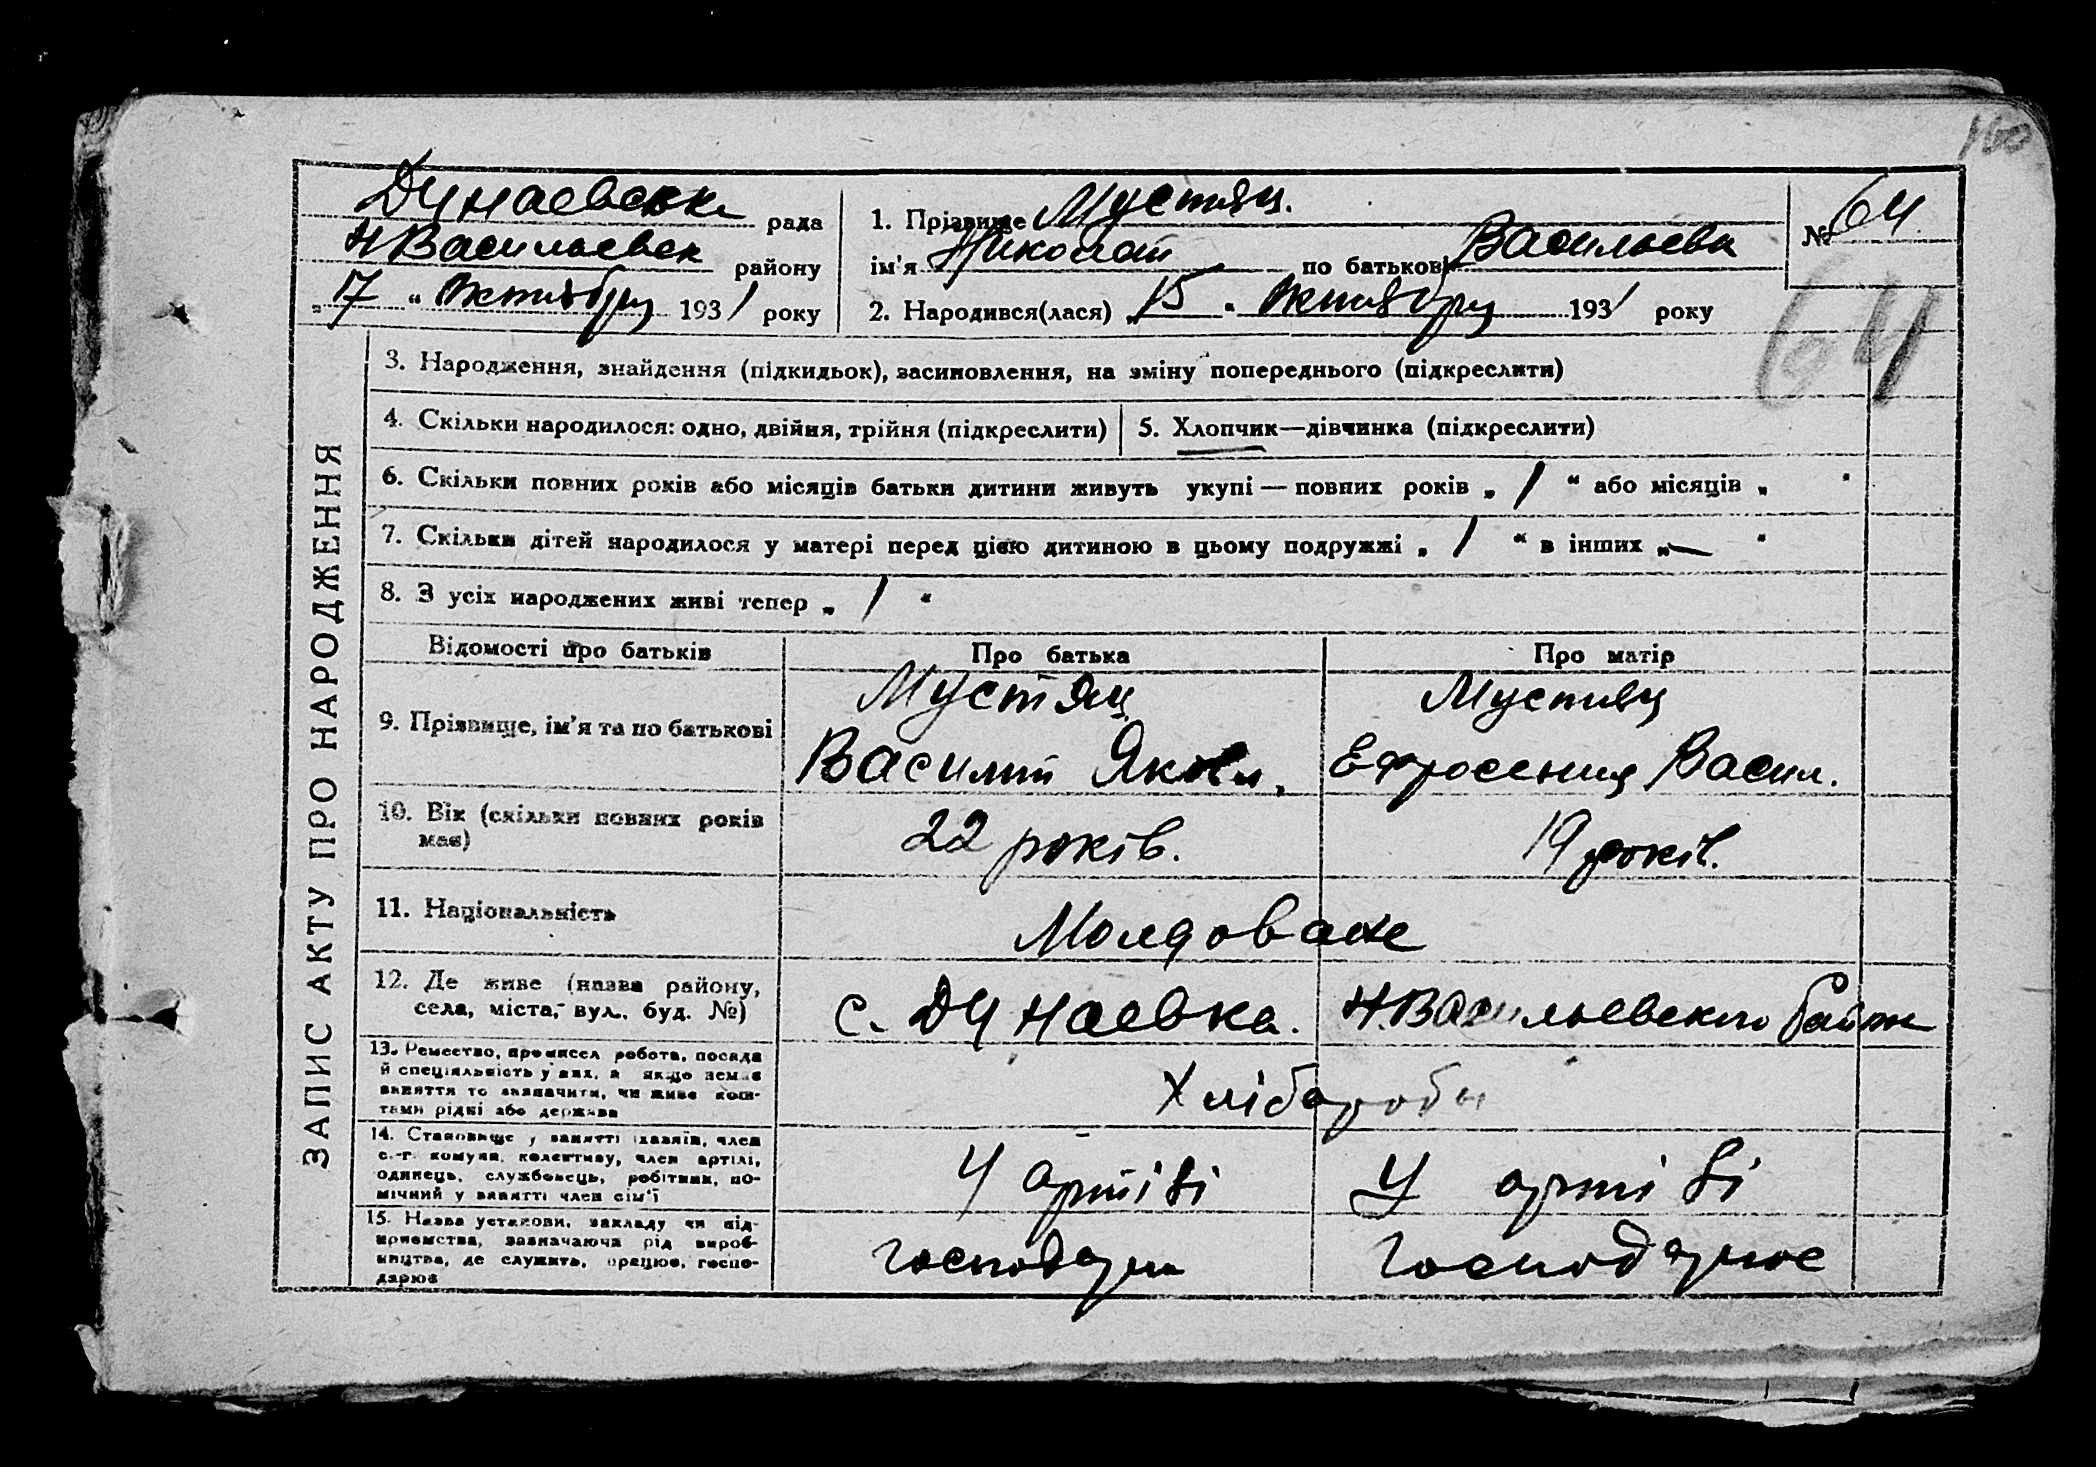 160
Дунаевська рада
Н Васильевск району
„ 17 “ Октября 1931 року
1. Прізвище Мустяц.
ім'я Николай по батькові Васильеви
2. Народився(лася) „ 15 “ Октября 1931 року
№ 64
64
ЗАПИС АКТУ ПРО НАРОДЖЕННЯ
3. Народження, знайдення (підкидьок), засиновлення, на зміну попереднього (підкреслити)
4. Скільки народилося: одно, двійня, трійня (підкреслити)
5. Хлопчик—дівчинка (підкреслити)
6. Скільки повних років або місяців батьки дитини живуть укупі — повних років „ 1 “ або місяців „ “
7. Скільки дітей народилося у матері перед цією дитиною в цьому подружжі „ 1 “ в інших „ — “
8. З усіх народжених живі тепер „ 1 “
Відомості про батьків
Про батька
Про матір
9. Прізвище, ім'я та по батькові
Мустяц
Василий Яковл.
Мустяц
Ефросения Васил.
10. Вік (скільки повних років має)
22 років.
19 років.
11. Національність
Молдоване
12. Де живе (назва району,
села, міста, вул., буд. №)
с. Дунаевка. Н.Васильевского район
13. Ремество, промисел робота, посада
й спеціяльність у них, а якщо немає
заняття то зазначити, чи живе кош-
тами рідні або держава
Хлібороби
14. Становище у занятті (хазяїн, член
с.-г. комуни, колективу, член артілі,
одинець, службовець, робітник, по-
мічний у занятті член сім'ї
У артілі
У артілі
15. Назва установи, закладу чи під-
приємства, зазначаюча рід вироб-
ництва, де служить, працює, госпо-
дарює
Господарює